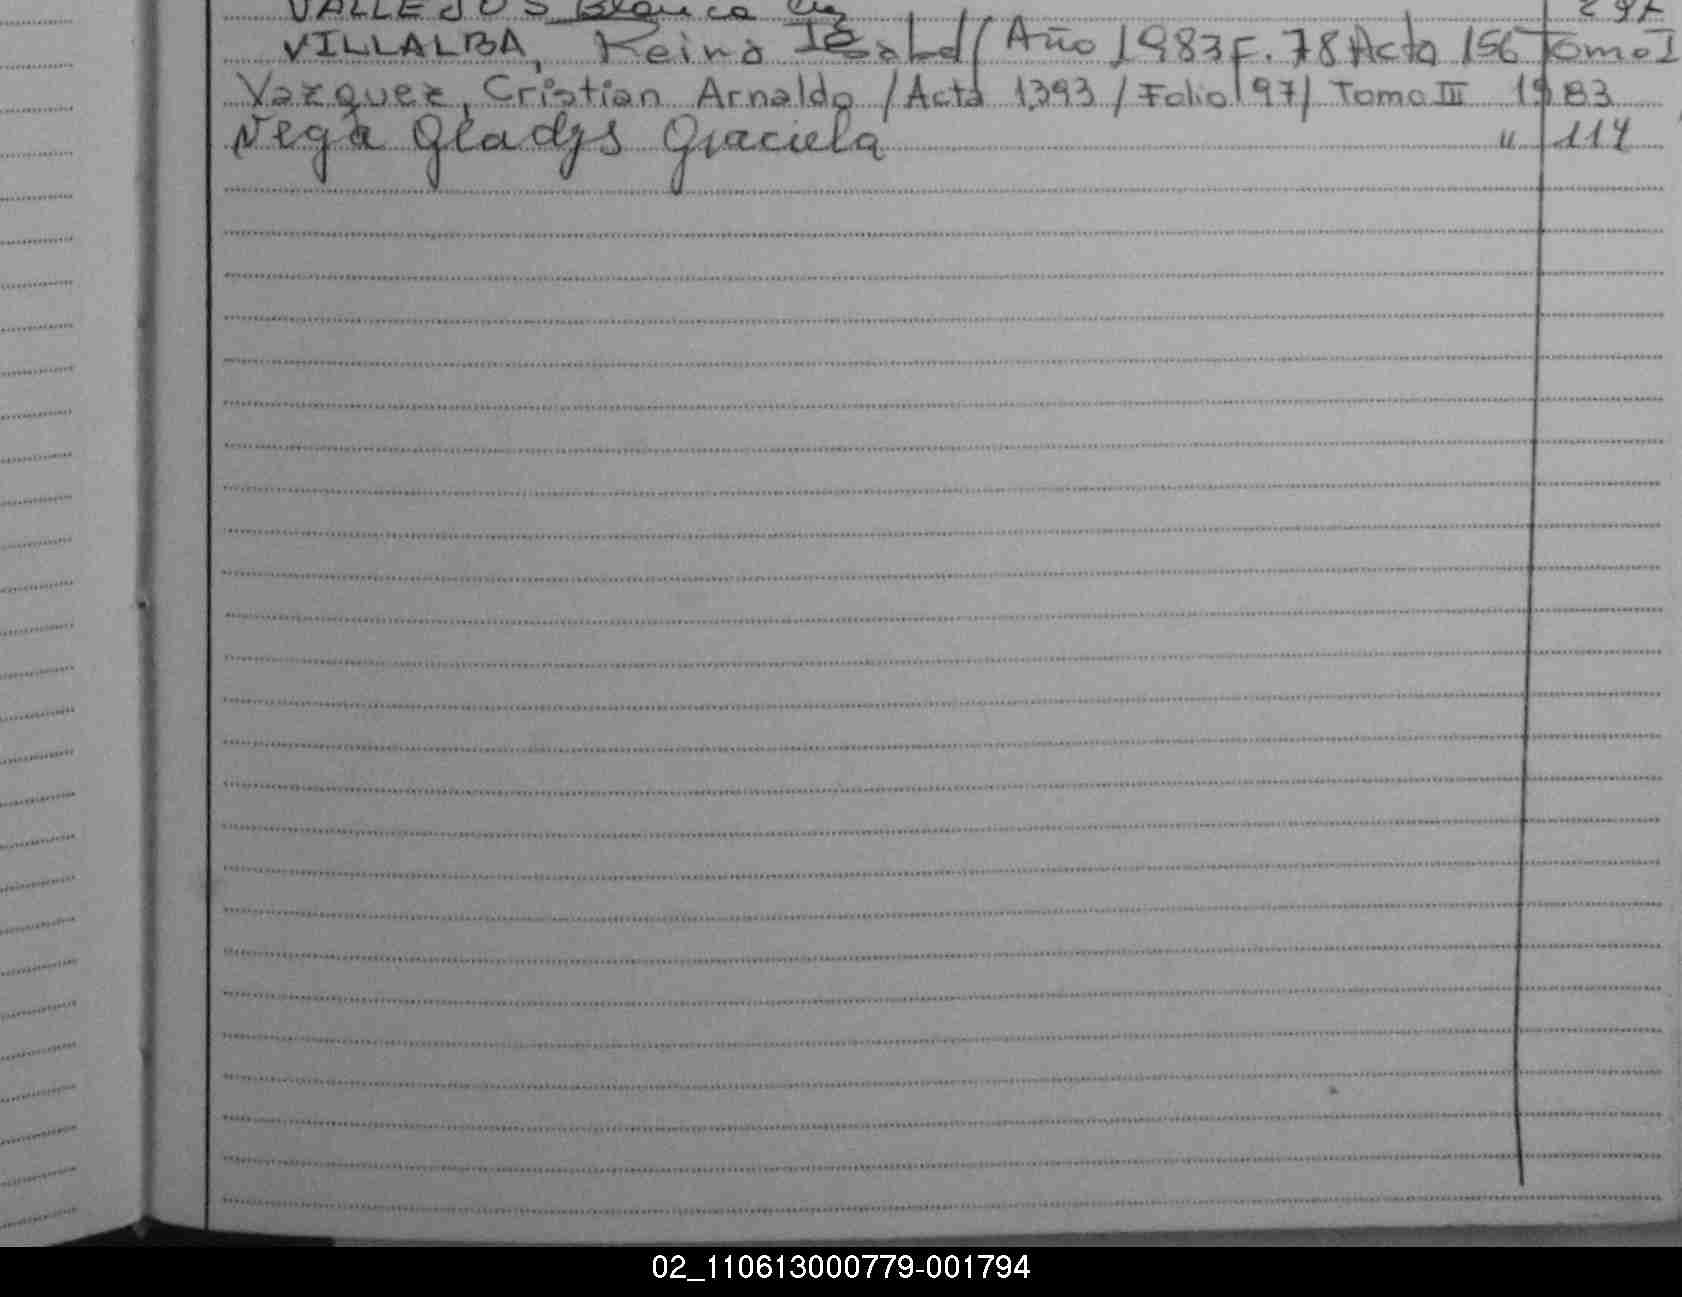 VALLEJOS Blanca
VILLALBA, Reina Isabel / Año 1983 F. 78 Acta 156 Tomo I
Vazquez, Cristian Arnaldo / Acta 1393 / Folio 97 / Tomo III 1983
Vega Gladys Graciela " 114
02_110613000779-001794